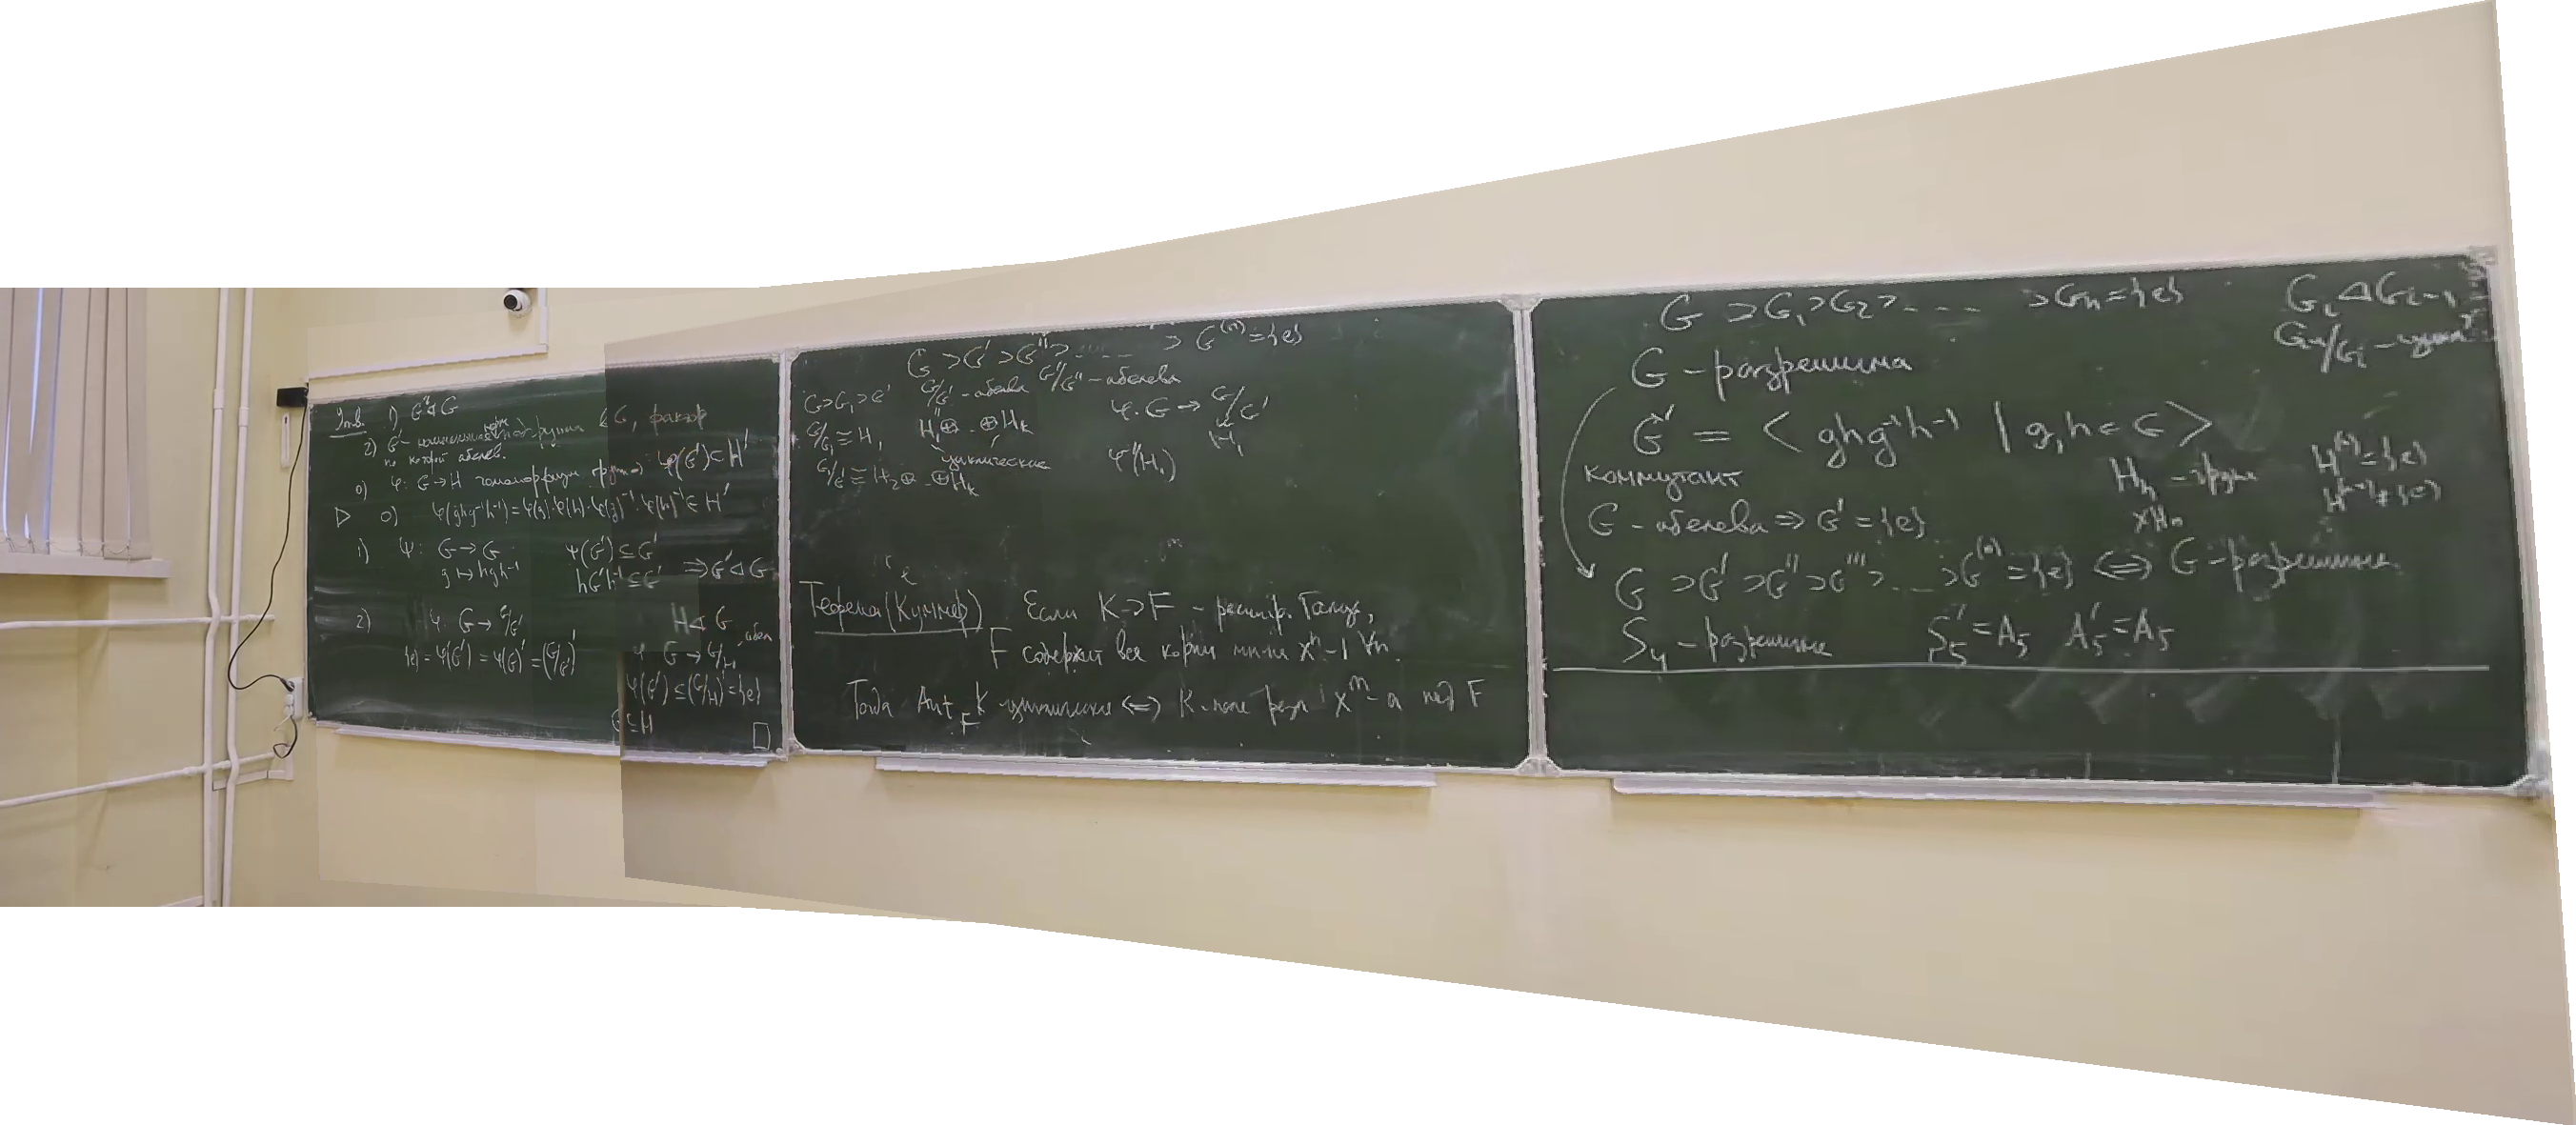 Утв. 1) G' ⊲ G
2) G' - норм. подгруппа G, фактор
по которой абелев.
0) φ: G → H гомоморфизм групп ⇒ φ(G') ⊂ H'
▷ 0) φ(ghg⁻¹h⁻¹) = φ(g)·φ(h)·φ(g)⁻¹·φ(h)⁻¹ ∈ H'
1) ψ: G → G ψ(G') ⊆ G'
g ↦ hgh⁻¹ hG'h⁻¹ ⊆ G' ⇒ G' ⊲ G
2) φ: G → G/G' H ⊲ G
{e} = φ(G') = φ(G)' = (G/G')' φ G → G/H абел
φ(G') ⊆ (G/H)' = {e}
G' ⊆ H □
G > G' > G'' > ..... > G⁽ⁿ⁾ = {e}
G/G' - абелева G'/G'' - абелева
G > G₁ > G' φ: G → G/G'
G/G₁ ≅ H₁ H₁ ⊕ .. ⊕ H_k H₁
циклические φ⁻¹(H₁)
G₁/G' ≅ H₂ ⊕ .. ⊕ H_k
Теорема (Куммер) Если K ⊃ F - расшир. Галуа,
F содержит все корни мн-на xⁿ - 1 ∀n.
Тогда Aut_F K циклическая ⇔ K - поле разл xᵐ - a над F
G > G₁ > G₂ > .... > Gₙ = {e} G_i ⊲ G_{i-1}
G_{i-1}/G_i - цикл
G - разрешима
G' = < ghg⁻¹h⁻¹ | g, h ∈ G >
коммутант
Hₙ - групп H⁽ⁿ⁾ = {e}
H⁽ⁿ⁻¹⁾ ≠ {e}
×Hₙ
G - абелева ⇒ G' = {e}
G > G' > G'' > G''' > ... > G⁽ⁿ⁾ = {e} ⇔ G - разрешима.
S₄ - разрешима S₅' = A₅ A₅' = A₅